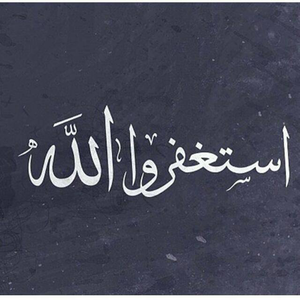 استغفروا الله